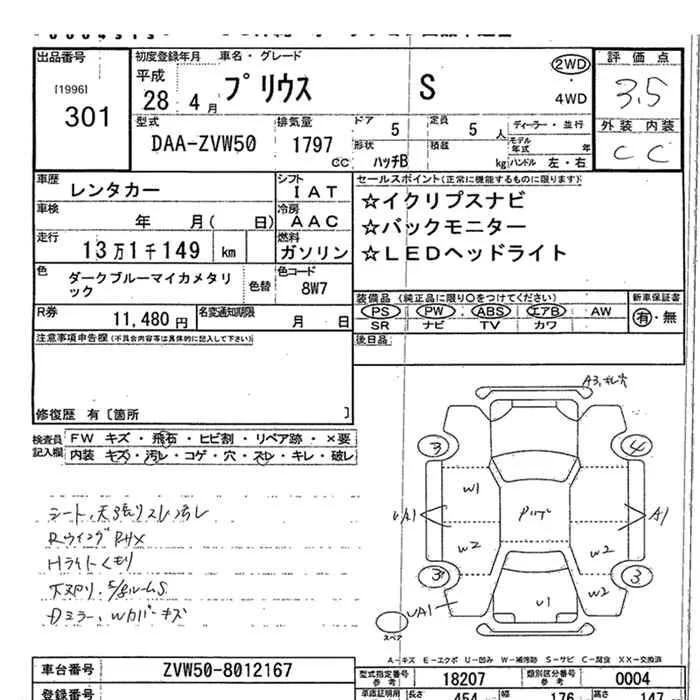 出品番号 初度登録年月 車名・グレード 評価点
[1996] 平成 プリウス S 2WD 3.5
301 28 4月 4WD
型式 排気量 ドア 5 定員 5人 ディーラー・並行 外装 内装
DAA-ZVW50 1797cc 形状 ハッチB 積載 kg モデル年式 年 C C
ハンドル 左・右
車歴 レンタカー シフト IAT セールスポイント(正常に機能するものに限ります)
車検 年 月( 日) 冷房 AAC ☆イクリプスナビ
走行 13万1千149 km 燃料 ガソリン ☆バックモニター
☆LEDヘッドライト
色 ダークブルーマイカメタリック 色替 色コード 8W7
装備品 (純正品に限り〇をつけてください) 新車保証書
R券 11,480円 名変通知期限 月 日 PS PW ABS エアB AW 有・無
SR ナビ TV カワ
注意事項申告欄(不具合内容等は具体的に記入して下さい) 後日品
修復歴 有〔箇所 〕
検査員記入欄 FW キズ・飛石・ヒビ割・リペア跡・×要
内装 キズ・汚レ・コゲ・穴・スレ・キレ・破レ
A3
3 4
W1
UA1 A1
W2 W2
3 3
UA1 U1 W2
スペア
シート、天張りスレ汚レ
Hライトくもり
Dミラー、Wカバーキズ
A-キズ E-エクボ U-凹み W-補修跡 S-サビ C-腐食 XX-交換済
車台番号 ZVW50-8012167 型式指定番号 参考 18207 類別区分番号 参考 0004
登録番号 長さ 454 幅 176 高さ 147